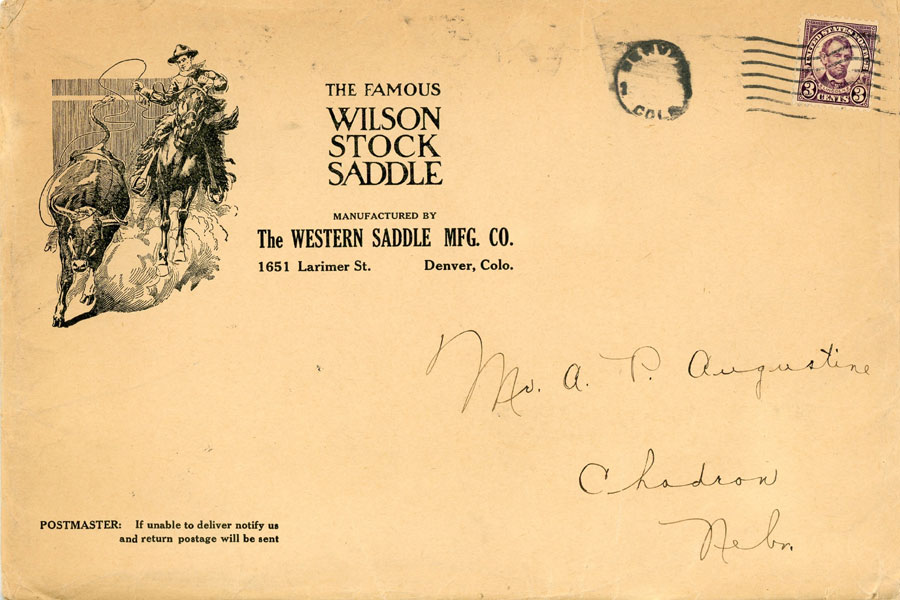 THE FAMOUS
WILSON
STOCK
SADDLE
MANUFACTURED BY
The WESTERN SADDLE MFG. CO.
1651 Larimer St. Denver, Colo.
DENVER
1
COLO
UNITED STATES POSTAGE
LINCOLN
3 CENTS 3
Mr. A. P. Augustine
Chadron
Nebr.
POSTMASTER: If unable to deliver notify us
and return postage will be sent